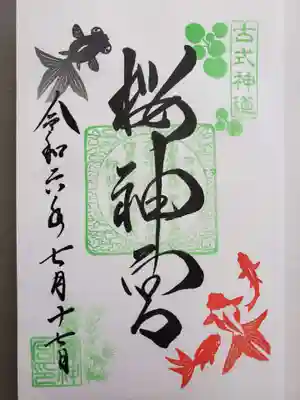 古式神道
桜神宮
令和六年七月十七日